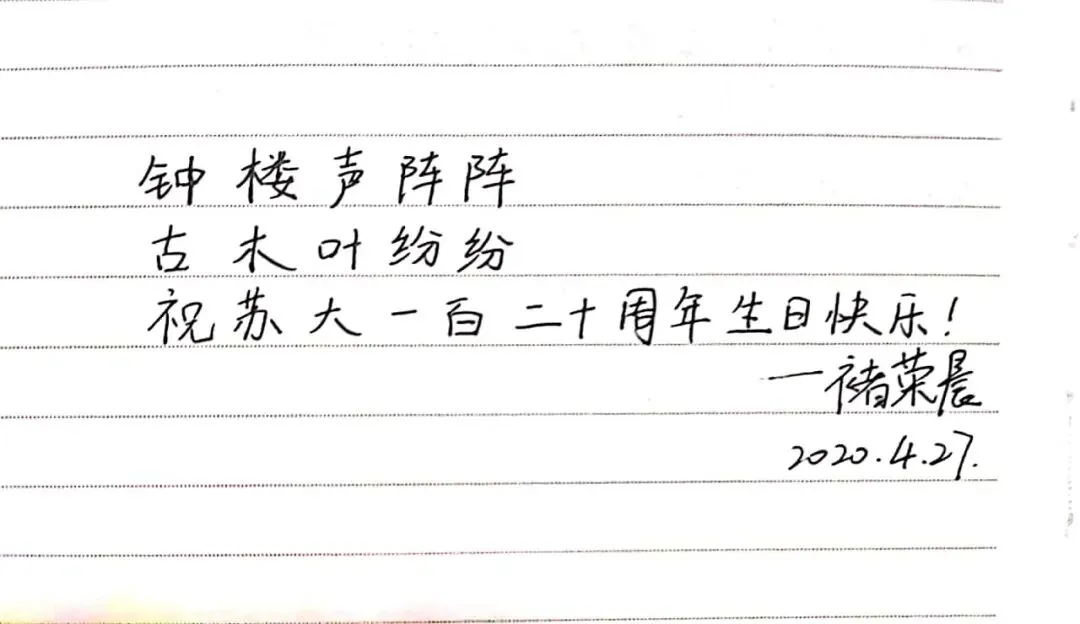 钟楼声阵阵
古木叶纷纷
祝苏大一百二十周年生日快乐！
—褚荣晨
2020.4.27.